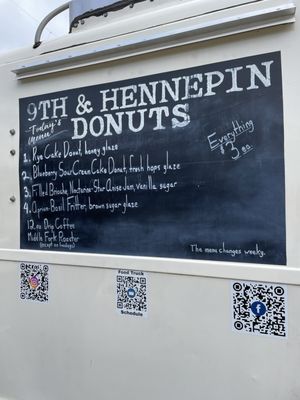 9TH & HENNEPIN
"Today's
Menu"
DONUTS
Everything
$3.00
1. Rye Cake Donut, honey glaze
2. Blueberry Sour Cream Cake Donut, fresh hops glaze
3. Filled Brioche, Nectarine-Star Anise Jam, vanilla sugar
4. Apricot-Basil Fritter, brown sugar glaze
12 oz Drip Coffee
Middle Fork Roaster
(except on Sundays)
The menu changes weekly.
Food Truck
Schedule